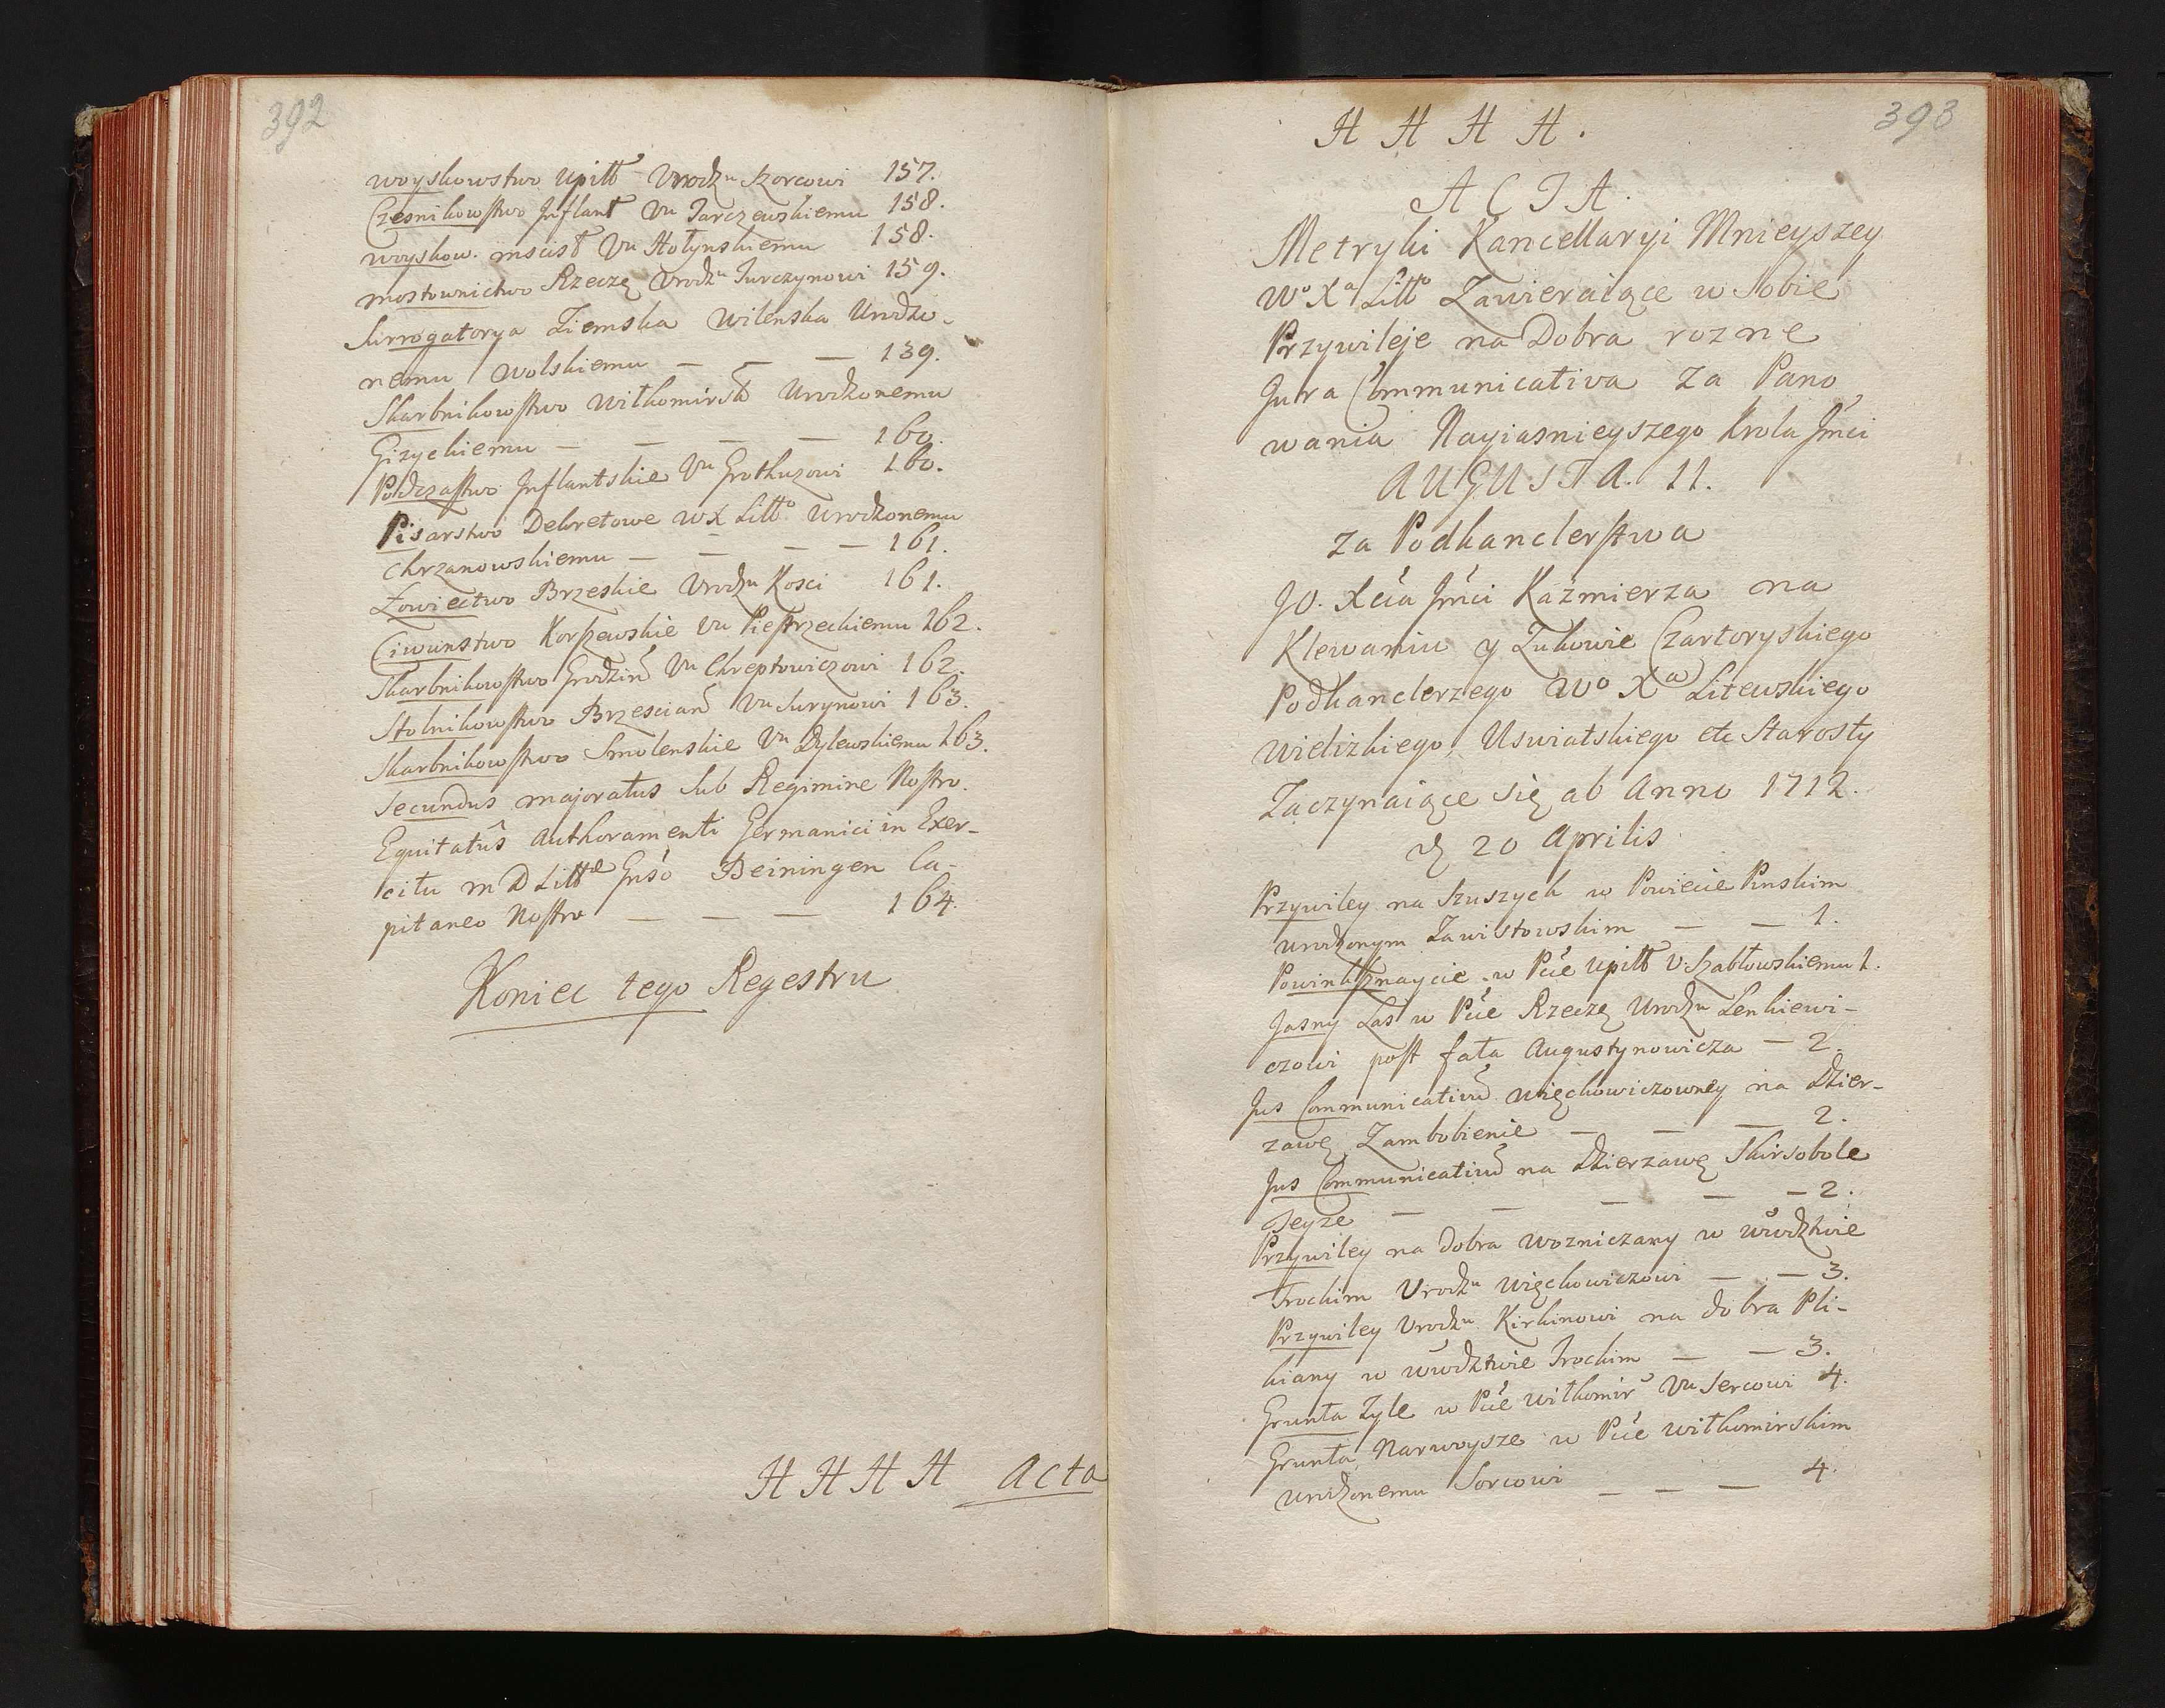 392
woyskowstwo Upitt Urodzu Szorcowi 157.
Czesnikowstwo Inflant Vu Jarczewskiemu 158.
woyskow. mscisł Vu Hołynskiemu 158.
mostownictwo Rzeczę Urodzu Jurczynowi 159.
Surrogatorya Ziemska Wilenska Urodzo-
nemu Wolskiemu — — — 139.
Skarbnikowstwo Wiłkomirsk Urodzonemu
Giżyckiemu — — — — 160.
Podczastwo Inflantskie Vu Grothuzowi 160.
Pisarstwo Dekretowe W X Litto Urodzonemu
Chrzanowskiemu — — — — 161.
Łowiectwo Brzeskie Urodzu Kosci 161.
Ciwunstwo Korszewskie Vu Piestrzeckiemu 162.
Skarbnikowstwo Grodzin Vu Chreptowiczowi 162.
Stolnikowstwo Brzescian Vu Surynowi 163.
Skarbnikowstwo Smolenskie Vu Dylewskiemu 163.
Secundus majoratus Sub Regimine Nostro.
Equitatûs Authoramenti Germanici in Exer-
citu M D Littae Gnso Beiningen Ca-
pitaneo Nostro — — — 164.
Koniec tego Regestru
H H H H Acta
393
H H H H.
ACTA.
Metryki Kancellaryi Mnieyszey
Wo Xa Litto Zawieraiące w Sobie
Przywileje na Dobra rozne
Jura Communicativa Za Pano
wania Nayiasnieyszego Krola Jmci
AUGUSTA. II.
za Podkanclerstwa
JO. Xcia Jmci Kaźmierza na
Klewaniu y Zukowie Czartoryskiego
Podkanclerzego Wo Xa Litewskiego
Wielizkiego, Uswiatskiego etc Starosty
Zaczynaiące się ab Anno 1712.
d 20 Aprilis
Przywiley na Szuszych w Powiecie Pinskim
urodzonym Zawistowskim — — 1.
Powinksznaycie w Pcie Upitt U: Szabłowskiemu 1.
Jasny Las w Pcie Rzeczę Urodzu Lenkiewi-
czowi post fata Augustynowicza — 2.
Jus Communicativu Więckowiczowney na Dzier-
zawę Zambobienie — — — 2.
Jus Communicativu na Dzierzawę Skirsobole
Teyze — — — — — 2.
Przywiley na Dobra Wozniczany w Wwdztwie
Trockim Urodzu Więckowiczowi — — 3.
Przywiley Urodzu Kirkinowi na dobra Pli-
kiany w Wwdztwie Trockim — — 3.
Grunta Zyle w Pcie Wiłkomir Vu Sercowi 4.
Grunta Narwoysze w Pcie Wiłkomirskim
Urodzonemu Sorcowi — — — 4.